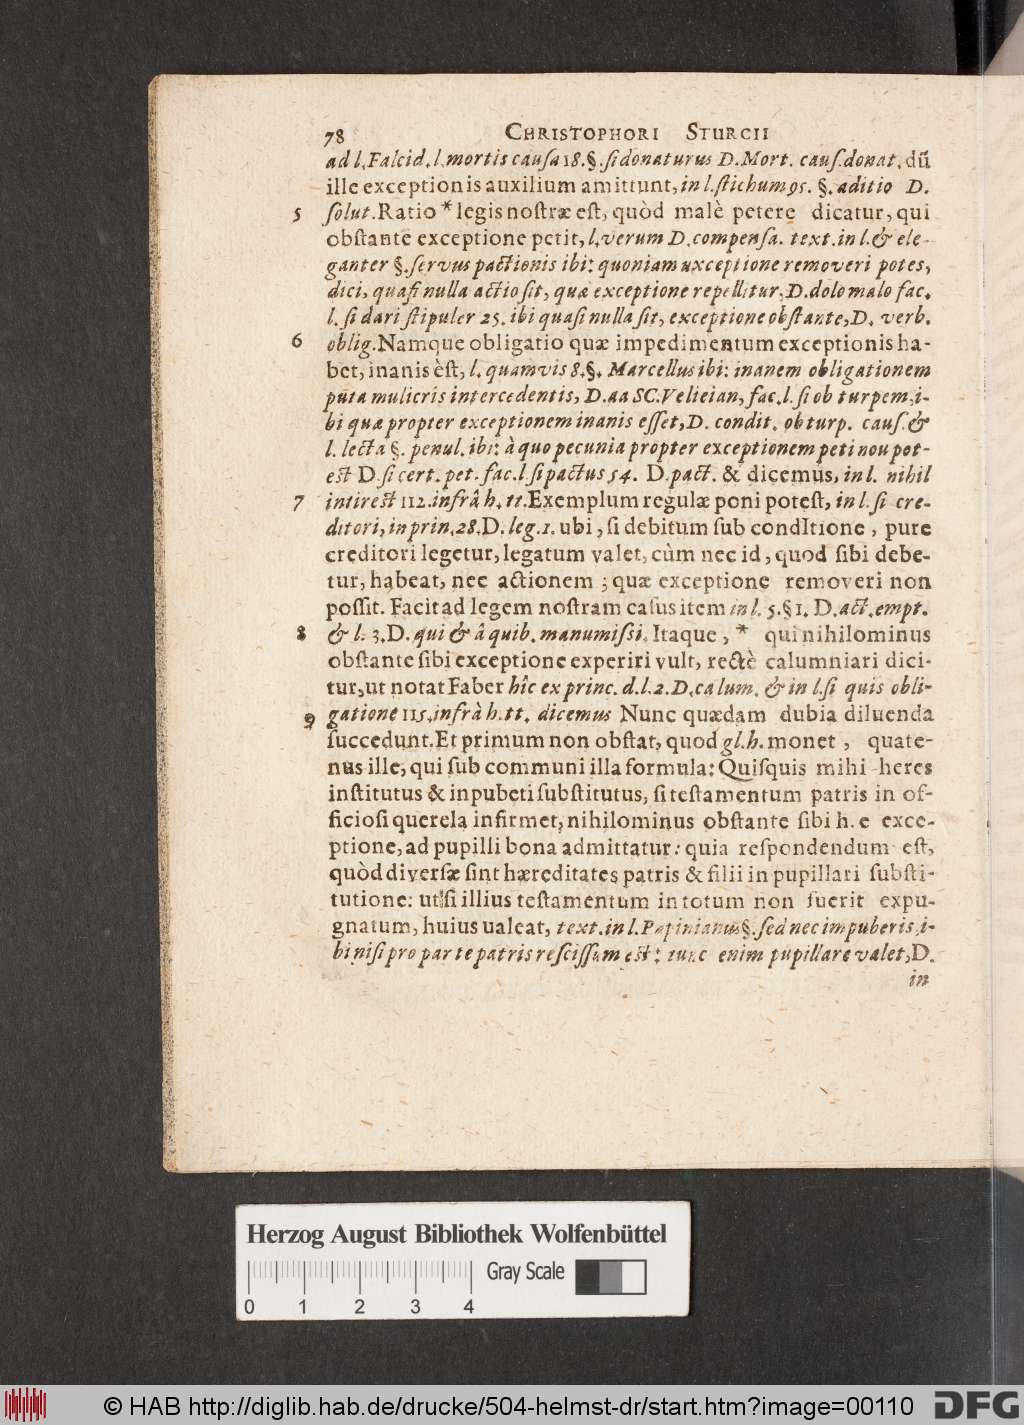 78 CHRISTOPHORI STURCII
ad l. Falcid. l. mortis causa 18. §. si donaturus D. Mort. caus. donat. dũ
ille exceptionis auxilium amittunt, in l. stichum 95. §. aditio D.
5 solut. Ratio * legis nostræ est, quòd malè petere dicatur, qui
obstante exceptione petit, l. verum D. compensa. text. in l. & ele-
ganter §. servus pactionis ibi: quoniam uxceptione removeri potes,
dici, quasi nulla actio sit, quæ exceptione repellitur, D. dolo malo fac.
l. si dari stipuler 25. ibi quasi nulla sit, exceptione obstante, D. verb.
6 oblig. Namque obligatio quæ impedimentum exceptionis ha-
bet, inanis èst, l. quamvis 8. §. Marcellus ibi: inanem obligationem
puta mulicris intercedentis, D. aa SC. Velieian, fac. l. si ob turpem, i-
bi quæ propter exceptionem inanis esset, D. condit. ob turp. caus. &
l. lecta §. penul. ibi: à quo pecunia propter exceptionem peti non pot-
est D. si cert. pet. fac. l si pactus 54. D. pact. & dicemus, in l. nihil
7 intirest 112. infrâ h. tt. Exemplum regulæ poni potest, in l. si cre-
ditori, in prin. 28. D. leg. 1. ubi, si debitum sub condItione, pure
creditori legetur, legatum valet, cùm nec id, quod sibi debe-
tur, habeat, nec actionem; quæ exceptione removeri non
possit. Facit ad legem nostram casus item in l. 5. § 1. D. act. empt.
8 & l. 3. D. qui & â quib. manumissi. Itaque, * qui nihilominus
obstante sibi exceptione experiri vult, rectè calumniari dici-
tur, ut notat Faber hîc ex princ. d. l. 2. D. calum. & in l. si quis obli-
9 gatione 115. infrà h. tt. dicemus Nunc quædam dubia diluenda
succedunt. Et primum non obstat, quod gl. h. monet, quate-
nus ille, qui sub communi illa formula: Quisquis mihi heres
institutus & inpubeti substitutus, si testamentum patris in of-
ficiosi querela infirmet, nihilominus obstante sibi h. e exce-
ptione, ad pupilli bona admittatur: quia respondendum est,
quòd diversæ sint hæreditates patris & filii in pupillari substi-
tutione: ut si illius testamentum in totum non fuerit expu-
gnatum, huius ualeat, text. in l. Papinianus §. sed nec impuberis i-
bi nisi pro parte patris rescissum est: tunc enim pupillare valet, D.
in
Herzog August Bibliothek Wolfenbüttel
0 1 2 3 4 Gray Scale
© HAB http://diglib.hab.de/drucke/504-helmst-dr/start.htm?image=00110 DFG